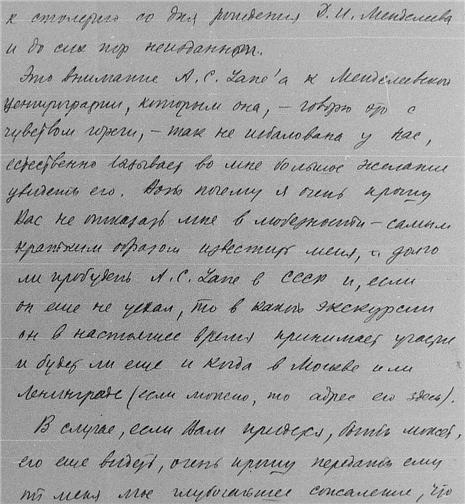 к столетию со дня рождения Д.И. Менделеева
и до сих пор неизданной.
Это внимание A.C. Lane'а к Менделеевской
ценирографии, которым она, – говорю это с
чувством горечи, – так не избалована у нас,
естественно вызывает во мне большое желание
увидеть его. Вот почему я очень прошу
Вас не отказать мне в любезности – самым
кратким образом известить меня, долго
ли пробудет A.C. Lane в СССР и, если
он еще не уехал, то в какой экскурсии
он в настоящее время принимает участие
и будет ли еще и когда в Москве или
Ленинграде (если можно, то адрес его здесь).
В случае, если Вам придется, быть может,
его еще видеть, очень прошу передать ему
от меня мое глубочайшее сожаление, что